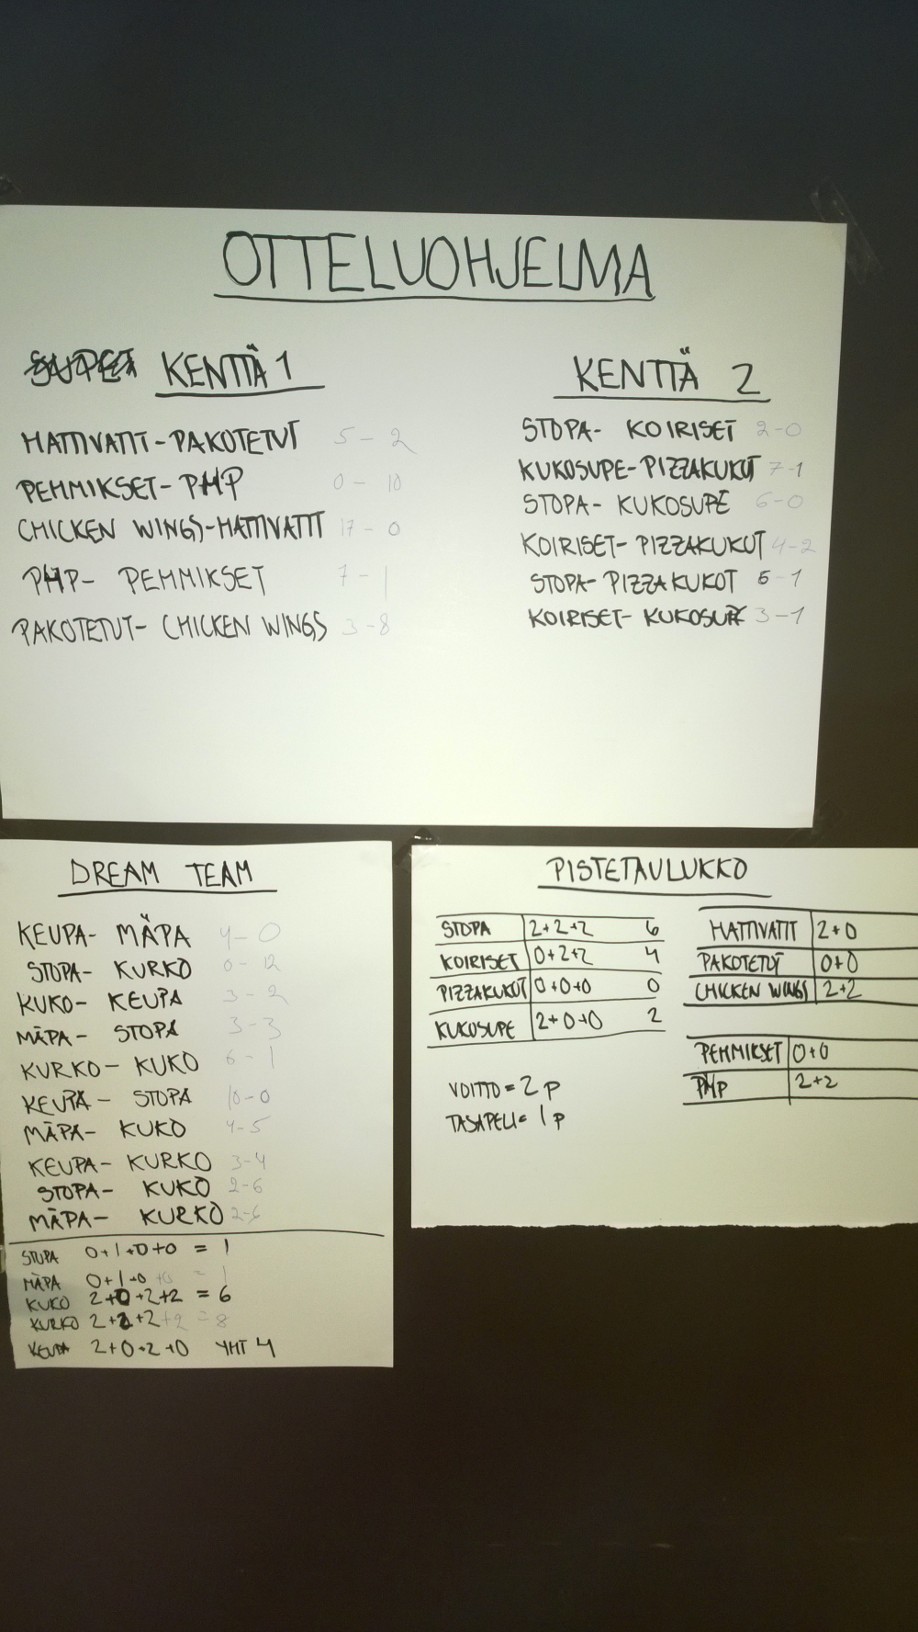 OTTELUOHJELMA
KENTTÄ 1
HATTIVATIT-PAKOTETUT 5-2
PEHMIKSET-PHP 0-10
CHICKEN WINGS-HATTIVATIT 17-0
PHP- PEHMIKSET 7-1
PAKOTETUT- CHICKEN WINGS 3-8
KENTTÄ 2
STOPA- KOIRISET 2-0
KUKOSUPE-PIZZAKUKUT 7-1
STOPA- KUKOSUPE 6-0
KOIRISET- PIZZAKUKUT 4-2
STOPA- PIZZAKUKOT 6-1
KOIRISET- KUKOSUPE 3-1
DREAM TEAM
KEUPA- MÄPA 4-0
STOPA- KURKO 0-12
KUKO- KEUPA 3-2
MÄPA- STOPA 3-3
KURKO- KUKO 6-1
KEUPA- STOPA 10-0
MÄPA- KUKO 4-5
KEUPA- KURKO 3-4
STOPA- KUKO 2-6
MÄPA- KURKO 2-6
STOPA 0+1+0+0 = 1
MÄPA 0+1+0+0 = 1
KUKO 2+0+2+2 = 6
KURKO 2+2+2+2 = 8
KEUPA 2+0+2+0 YHT 4
PISTETAULUKKO
STOPA 2+2+2 6
KOIRISET 0+2+2 4
PIZZAKUKUT 0+0+0 0
KUKOSUPE 2+0+0 2
VOITTO=2p
TASAPELI=1p
HATTIVATIT 2+0
PAKOTETUT 0+0
CHICKEN WINGS 2+2
PEHMIKSET 0+0
PHP 2+2